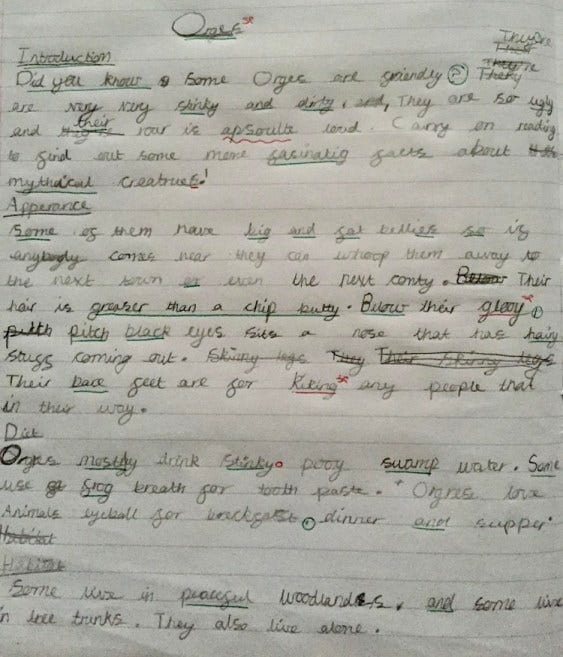 Orges sp
Introduction
Did you know some Orges are friendly? They're
are very very stinky and dirty, and, They are so ugly
and their roar is apsoulte loud. Carry on reading
to find out some more fasinatig facts about
mythical creatrues!
Apperance
Some of them have big and fat bellies so if
anybody comes near they can whoop them away to
the next town or even the next conty. Below Their
hair is greaser than a chip butty. Below their glooy sp
pitch pitch black eyes sits a nose that has hairy
stuff coming out. Skinny legs They Their skinny legs
Their bare feet are for kiking sp any people that
in their way.
Diet
Orges mostly drink stinky pooy swamp water. Some
use frog breath for tooth paste. Orgres love
Animals eyeball for breckfast, dinner and supper.
Habitat
Habitat
Some live in peaceful woodlands, and some live
in tree trunks. They also live alone.